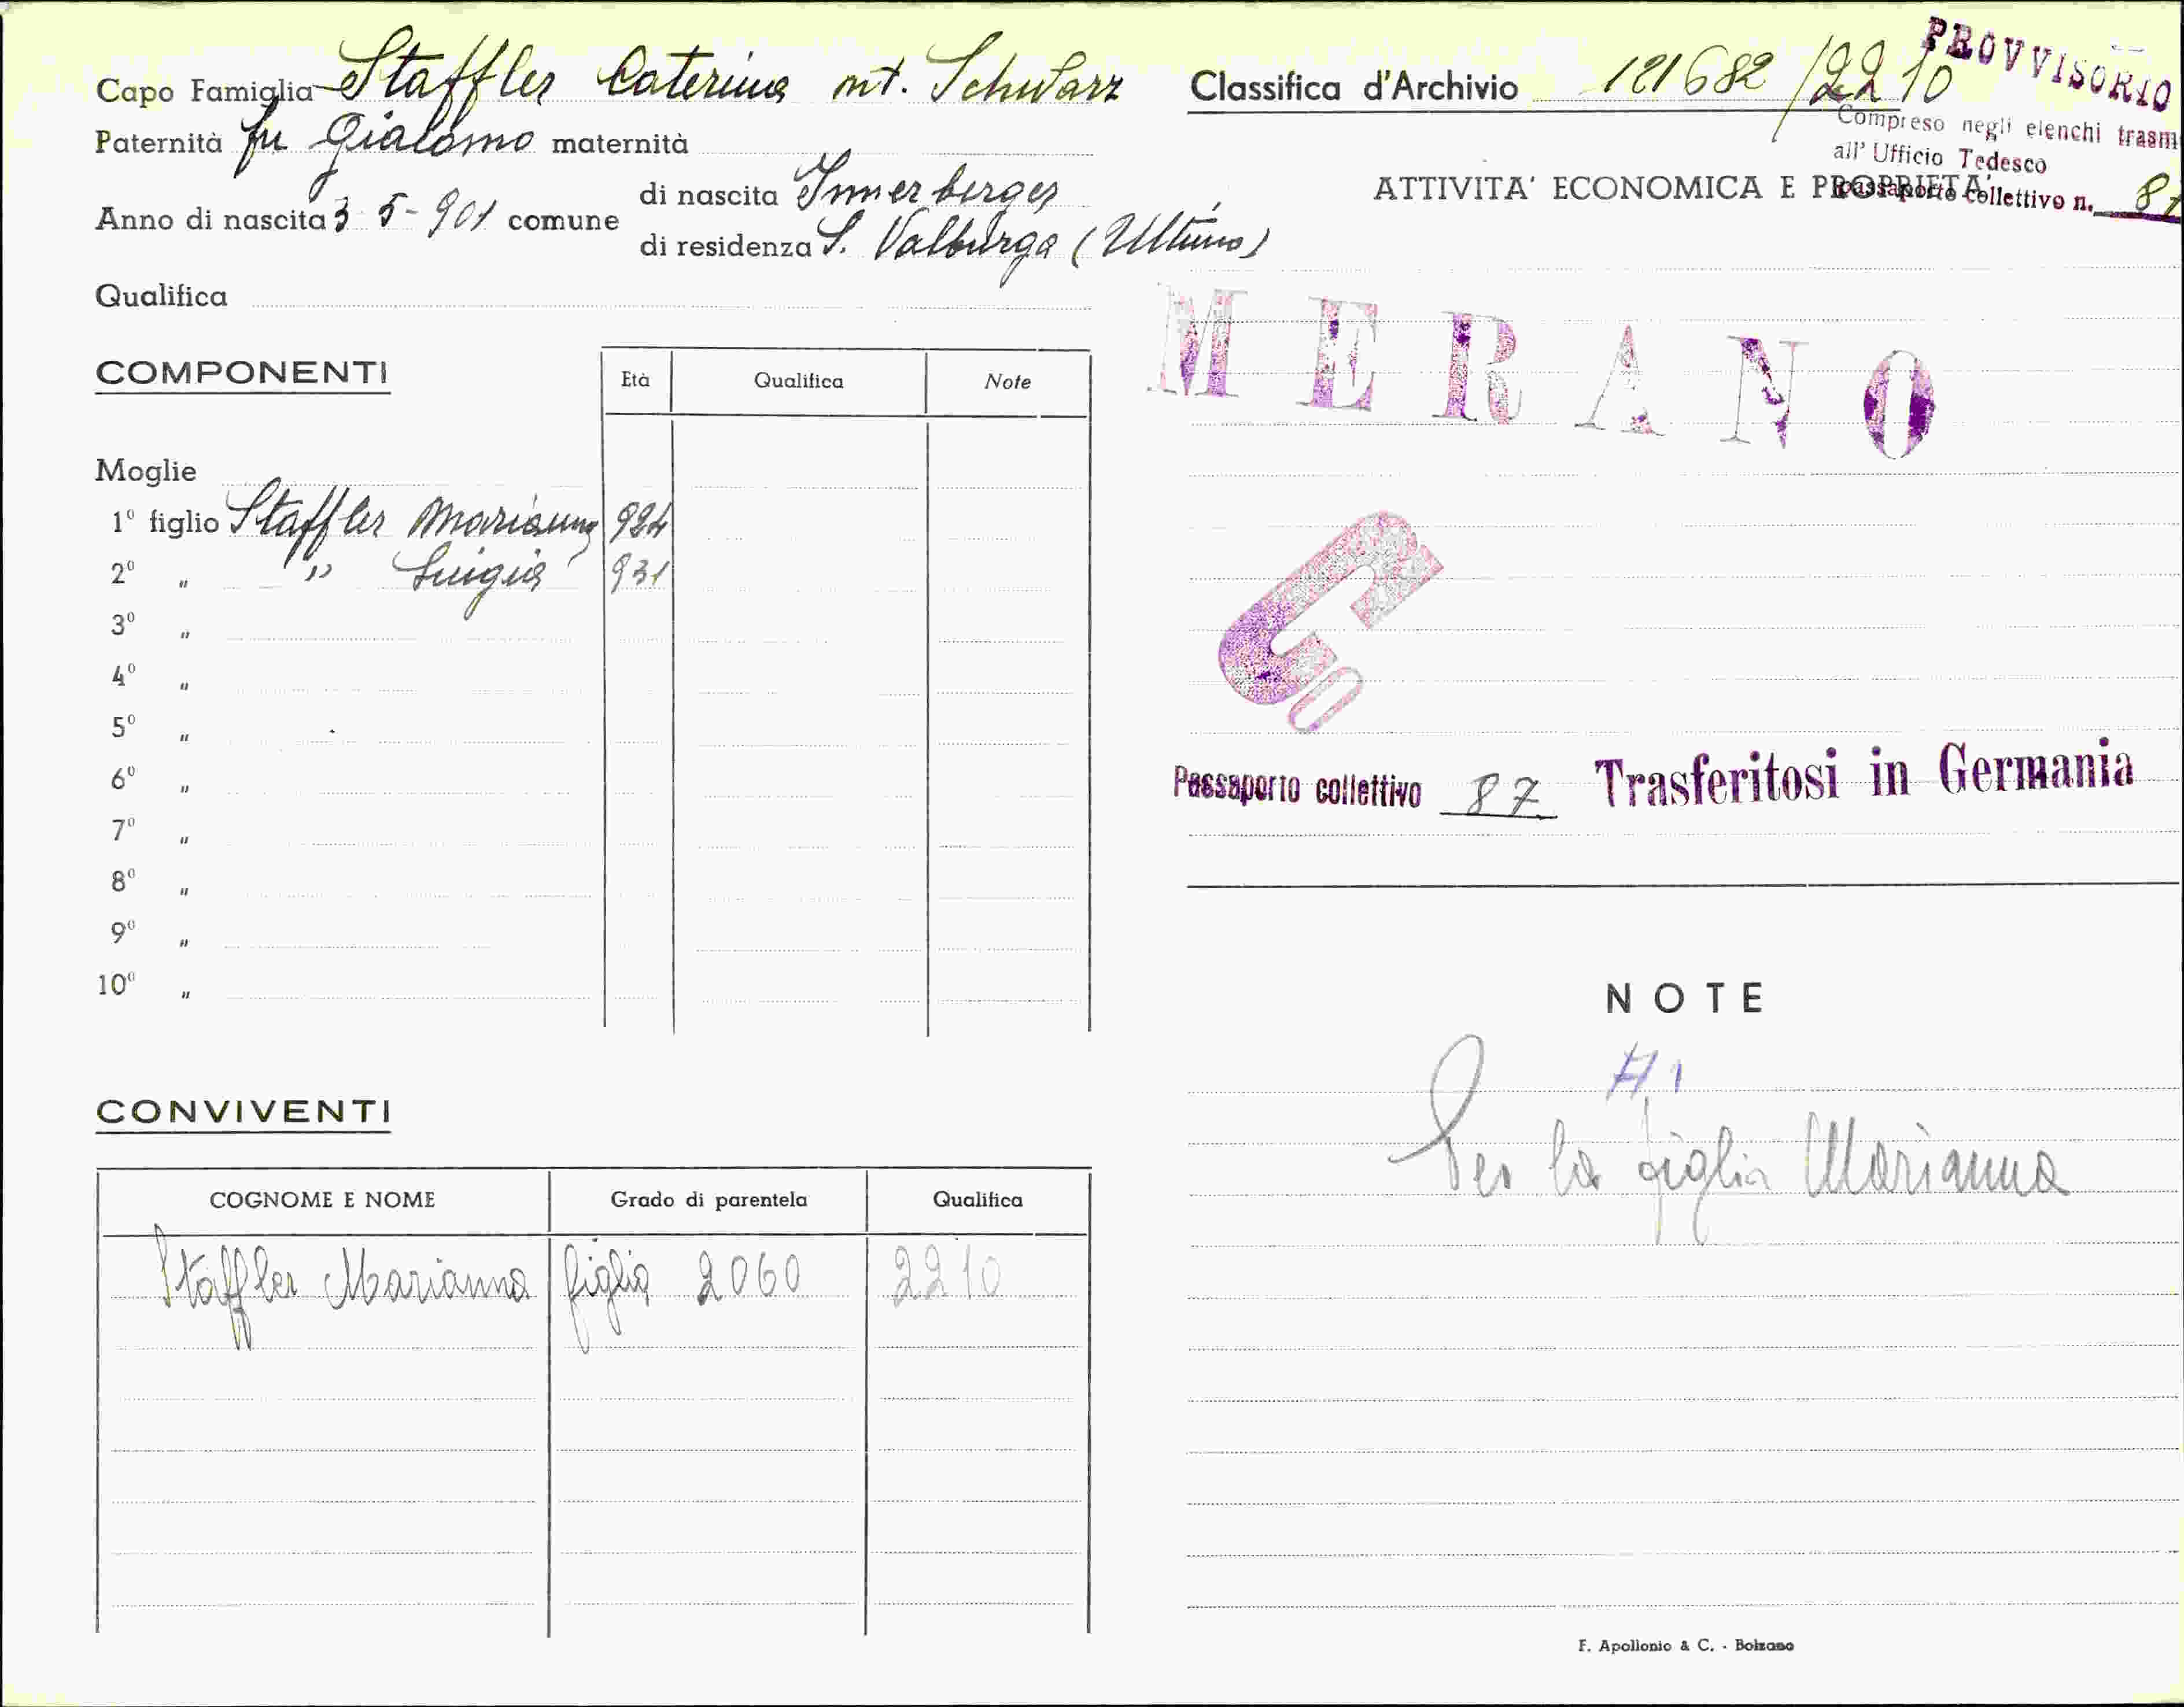 Capo Famiglia Staffler Caterina nt. Schwarz
Paternità fu Giacomo maternità
Anno di nascita 3-5-901 comune
di nascita Innerberger
di residenza S. Valburga (Ultimo)
Qualifica
COMPONENTI
Età Qualifica Note
Moglie
1° figlio Staffler Marianna 924
2° " " Luigia 931
3° "
4° "
5° "
6° "
7° "
8° "
9° "
10° "
CONVIVENTI
COGNOME E NOME Grado di parentela Qualifica
Staffler Marianna figlia 2060 2210
Classifica d'Archivio 121682/2210
PROVVISORIO
Compreso negli elenchi trasm
all' Ufficio Tedesco
passaporto collettivo n. 87
ATTIVITA' ECONOMICA E PROPRIETA'
MERANO
Passaporto collettivo 87 Trasferitosi in Germania
NOTE
A 1
Per la figlia Marianna
F. Apollonio & C. - Bolzano